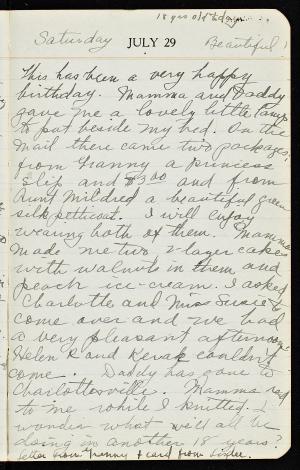 18 yrs old today
Saturday JULY 29 Beautiful!
This has been a very happy
birthday. Mamma and Daddy
gave me a lovely little lamp
to put beside my bed. In the
mail there came two packages,
from Granny a princess
slip and $3.00 and from
Aunt Mildred a beautiful green
silk petticoat. I will enjoy
wearing both of them. Mamma
made me two 2-layer cakes
with walnuts in them and
peach ice-cream. I asked
Charlotte and Miss Susie to
come over and we had
a very pleasant afternoon.
Helen R and couldn't
come. Daddy has gone to
Charlottesville. Mamma read
to me while I knitted. I
wonder what we'll all be
doing in another 18 years?
letter from Granny & card from